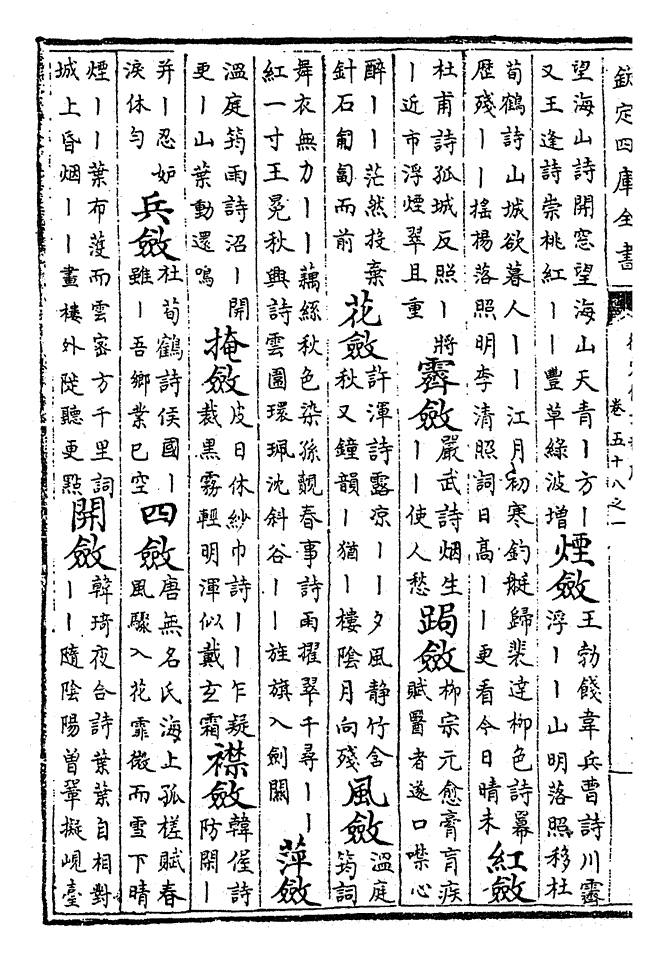 欽定四庫全書
卷五十八之一
望海山詩開窓望海山天青丨方丨
又王逢詩崇桃紅丨丨豐草綠波增
煙斂
王勃餞韋兵曹詩川霽
浮丨丨山明落照移杜
荀鶴詩山城欲暮人丨丨江月初寒釣艇歸裴逹柳色詩冪
歴殘丨丨揺揚落照明李清照詞日高丨丨更看今日晴未
紅斂
杜甫詩孤城反照丨將
丨近市浮煙翠且重
霽斂
嚴武詩烟生
丨丨使人愁
跼斂
柳宗元愈膏肓疾
賦醫者遂口噤心
醉丨丨茫然投棄
針石匍匐而前
花斂
許渾詩露凉丨丨夕風静竹含
秋又鐘韻丨猶丨樓陰月向殘
風斂
溫庭
筠詞
舞衣無力丨丨藕絲秋色染孫覿春事詩雨擢翠千尋丨丨
紅一寸王冕秋興詩雲圍環珮沈斜谷丨丨旌旗入劍關
萍斂
溫庭筠雨詩沼丨開
更丨山葉動還鳴
掩斂
皮日休紗巾詩丨丨乍凝
裁黑霧輕明渾似戴玄霜
襟斂
韓偓詩
防閑丨
并丨忍妬
淚休勻
兵斂
杜荀鶴詩侯國丨
雖丨吾鄉業已空
四斂
唐無名氏海上孤槎賦春
風驟入花霏微而雪下晴
煙丨丨葉布蔆而雲密方千里詞
城上昏烟丨丨畫樓外陡聽更點
開斂
韓琦夜合詩葉葉自相對
丨丨隨陰陽曾鞏擬峴臺